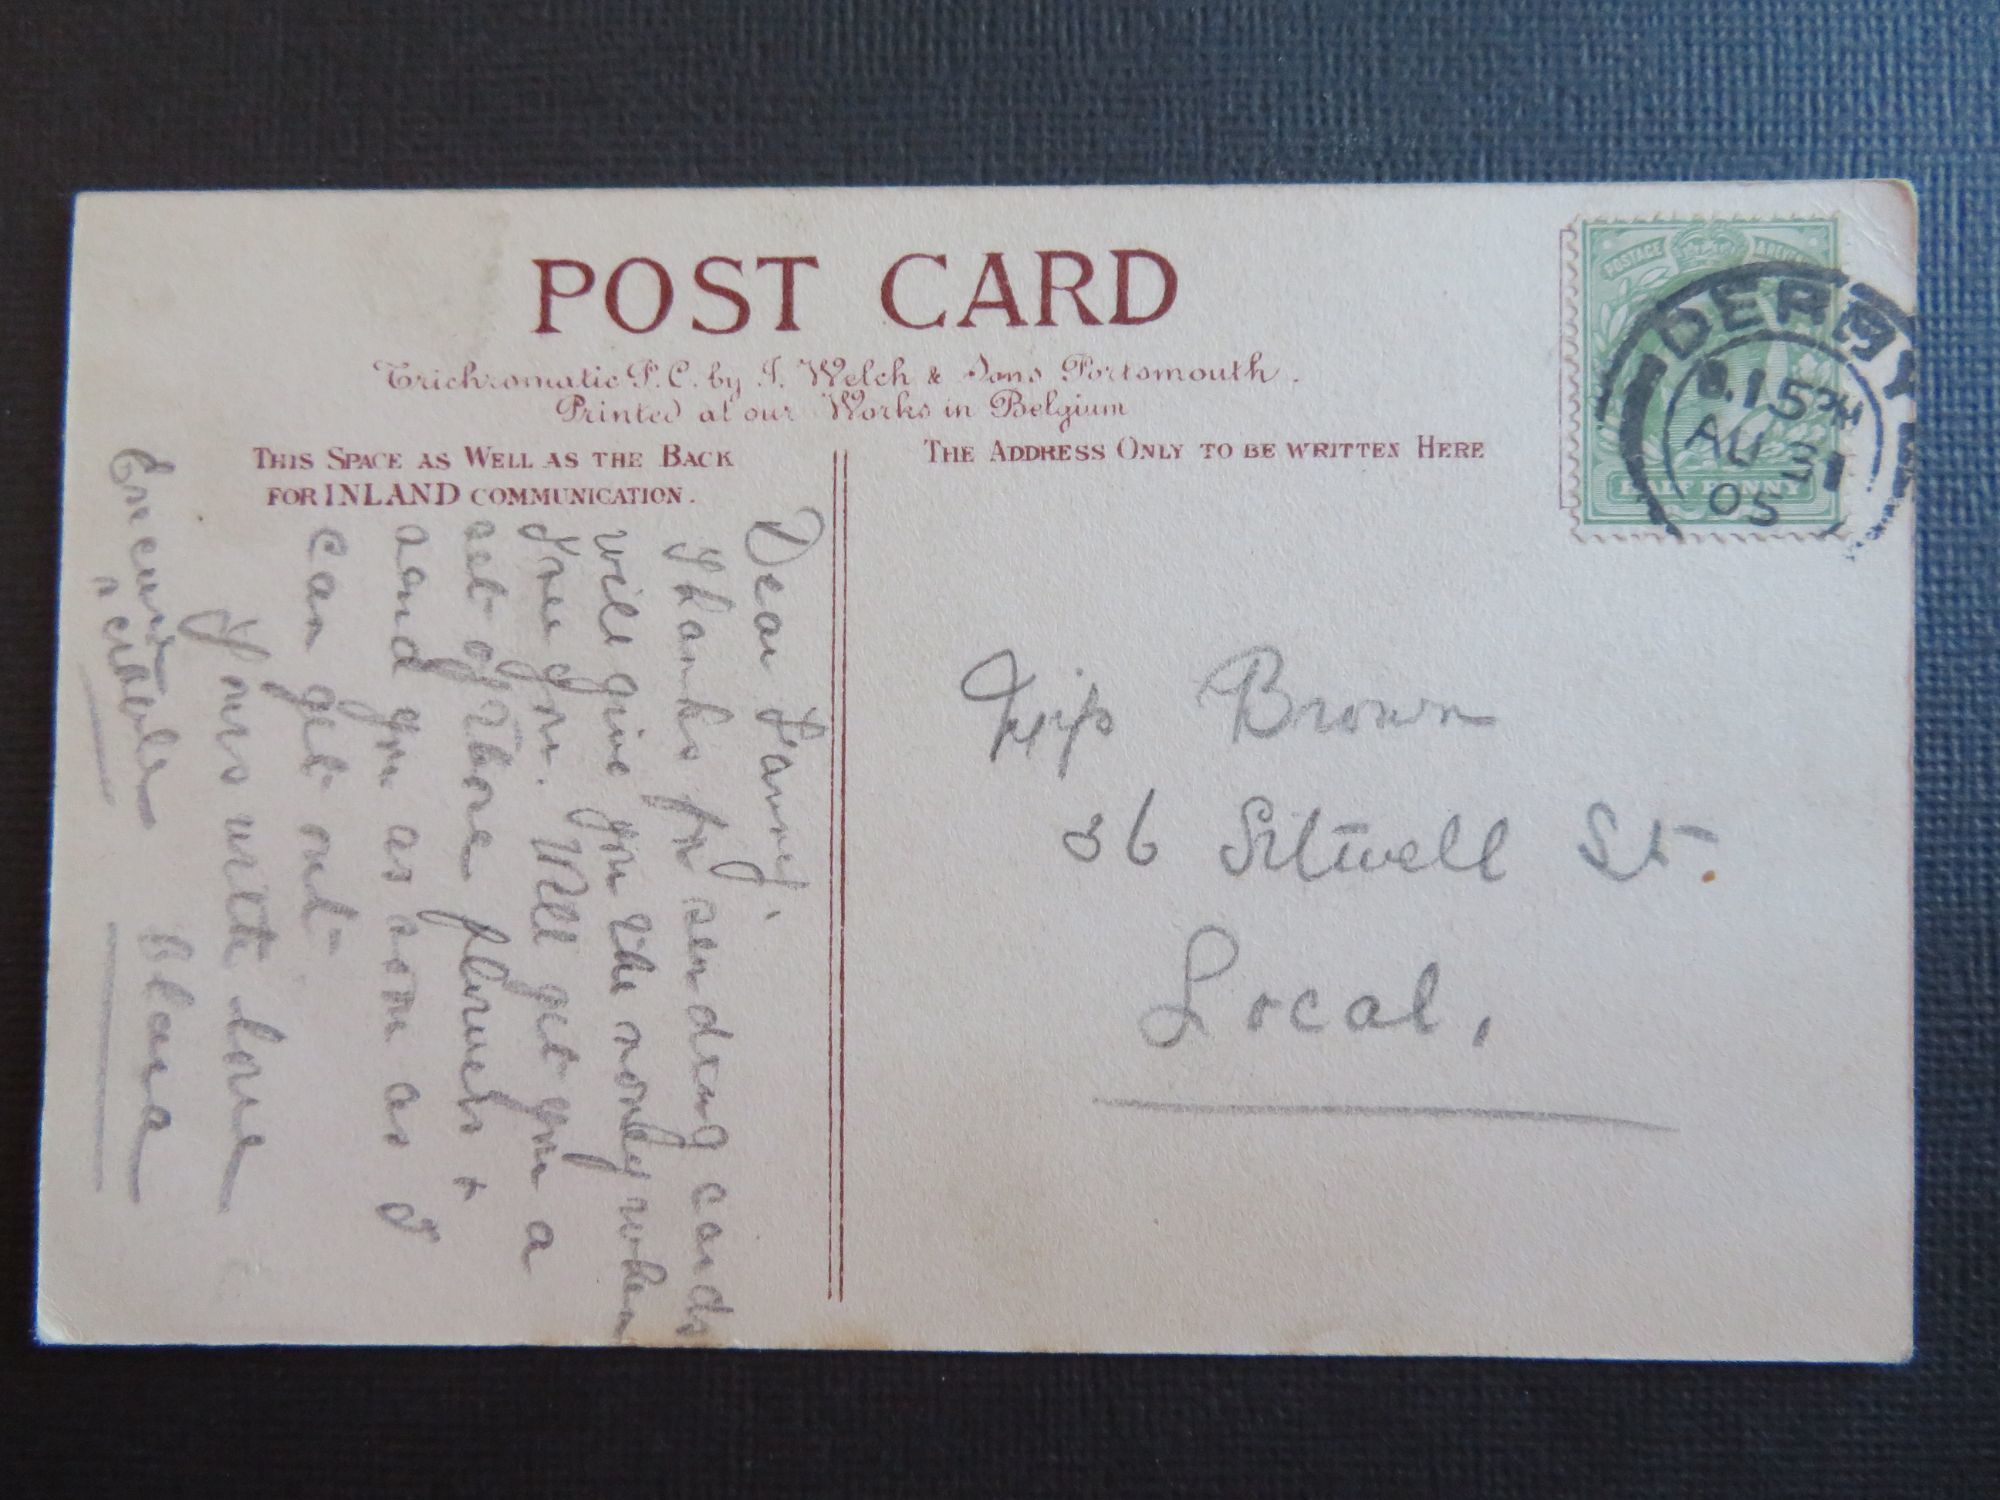 POST CARD
Trichromatic P.C. by J. Welch & Sons Portsmouth.
Printed at our Works in Belgium
THIS SPACE AS WELL AS THE BACK
FOR INLAND COMMUNICATION.
THE ADDRESS ONLY TO BE WRITTEN HERE
POSTAGE & REVENUE
HALF PENNY
DERBY
15 PM
AU 31
05
Dear Fanny.
Thanks for sending cards
will give you the money when
I see you. Will get you a
set of those flowers +
send you as soon as I
can get out
Yours with love
Clara
Excuse
scribble
Miss Brown
36 Sitwell St.
Local.